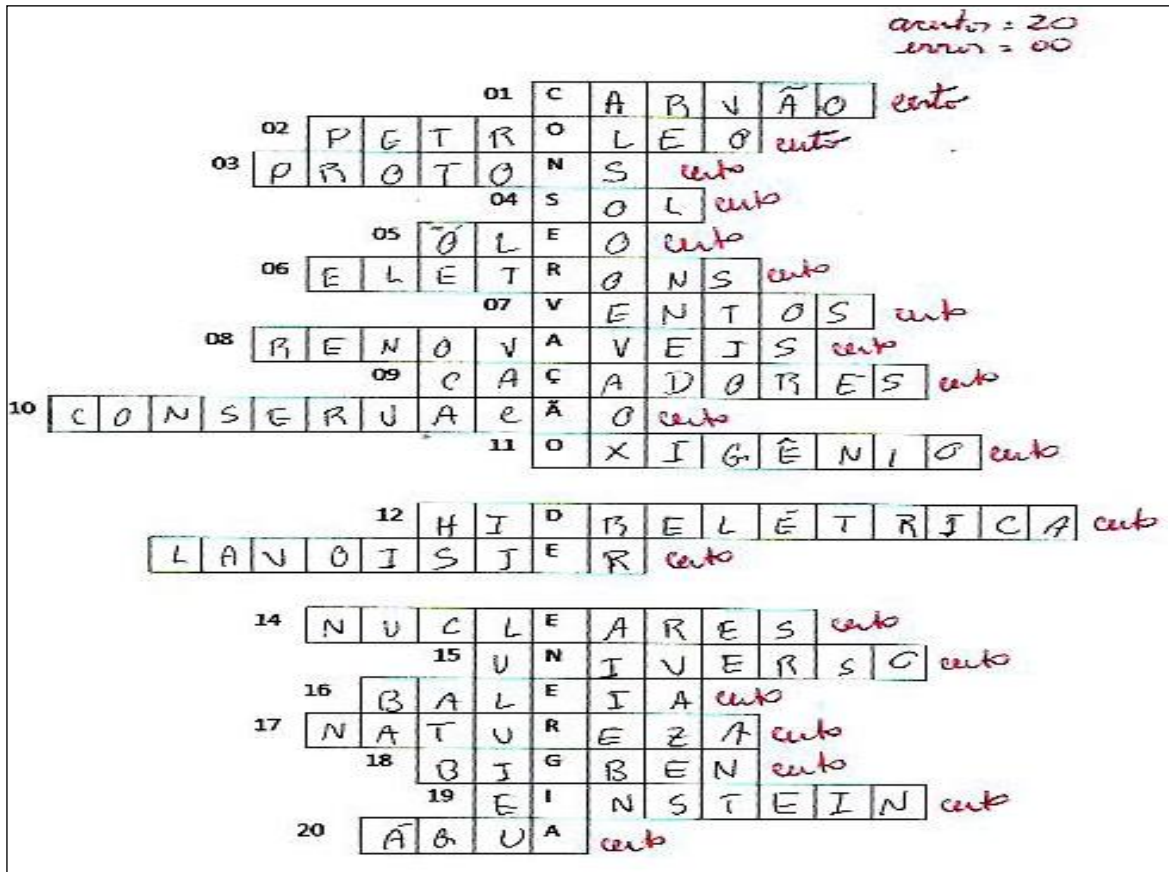 acertos = 20
erros = 00
01 CARVÃO certo
02 PETROLEO certo
03 PROTONS certo
04 SOL certo
05 ÓLEO certo
06 ELETRONS certo
07 VENTOS certo
08 RENOVAVEIS certo
09 CAÇADORES certo
10 CONSERVAÇÃO certo
11 OXIGÊNIO certo
12 HIDRELÉTRICA certo
LAVOISIER certo
14 NUCLEARES certo
15 UNIVERSO certo
16 BALEIA certo
17 NATUREZA certo
18 BIGBEN certo
19 EINSTEIN certo
20 ÁGUA certo